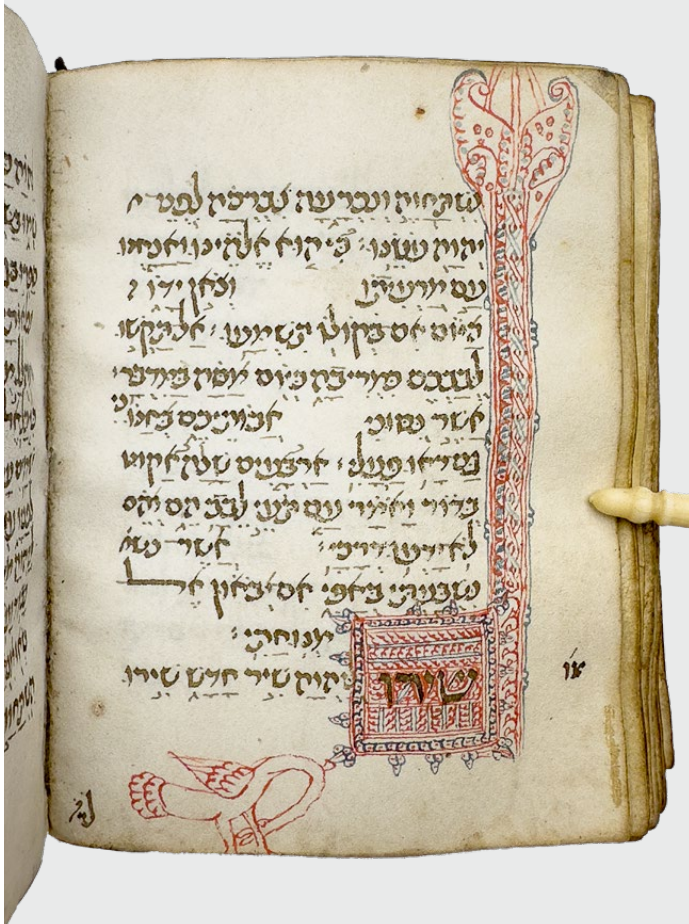 נשתחוה ונכרעה נברכה לפני
יהוה עשנו: כי הוא אלהינו ואנחנו
עם מרעיתו וצאן ידו
היום אם בקולו תשמעו: אל תקשו
לבבכם כמריבה כיום מסה במדבר
אשר נסוני אבותיכם בחנוני
גם ראו פעלי: ארבעים שנה אקוט
בדור ואמר עם תעי לבב הם והם
לא ידעו דרכי: אשר
נשבעתי באפי אם יבאון אל
מנוחתי:
שירו ליהוה שיר חדש שירו
צו